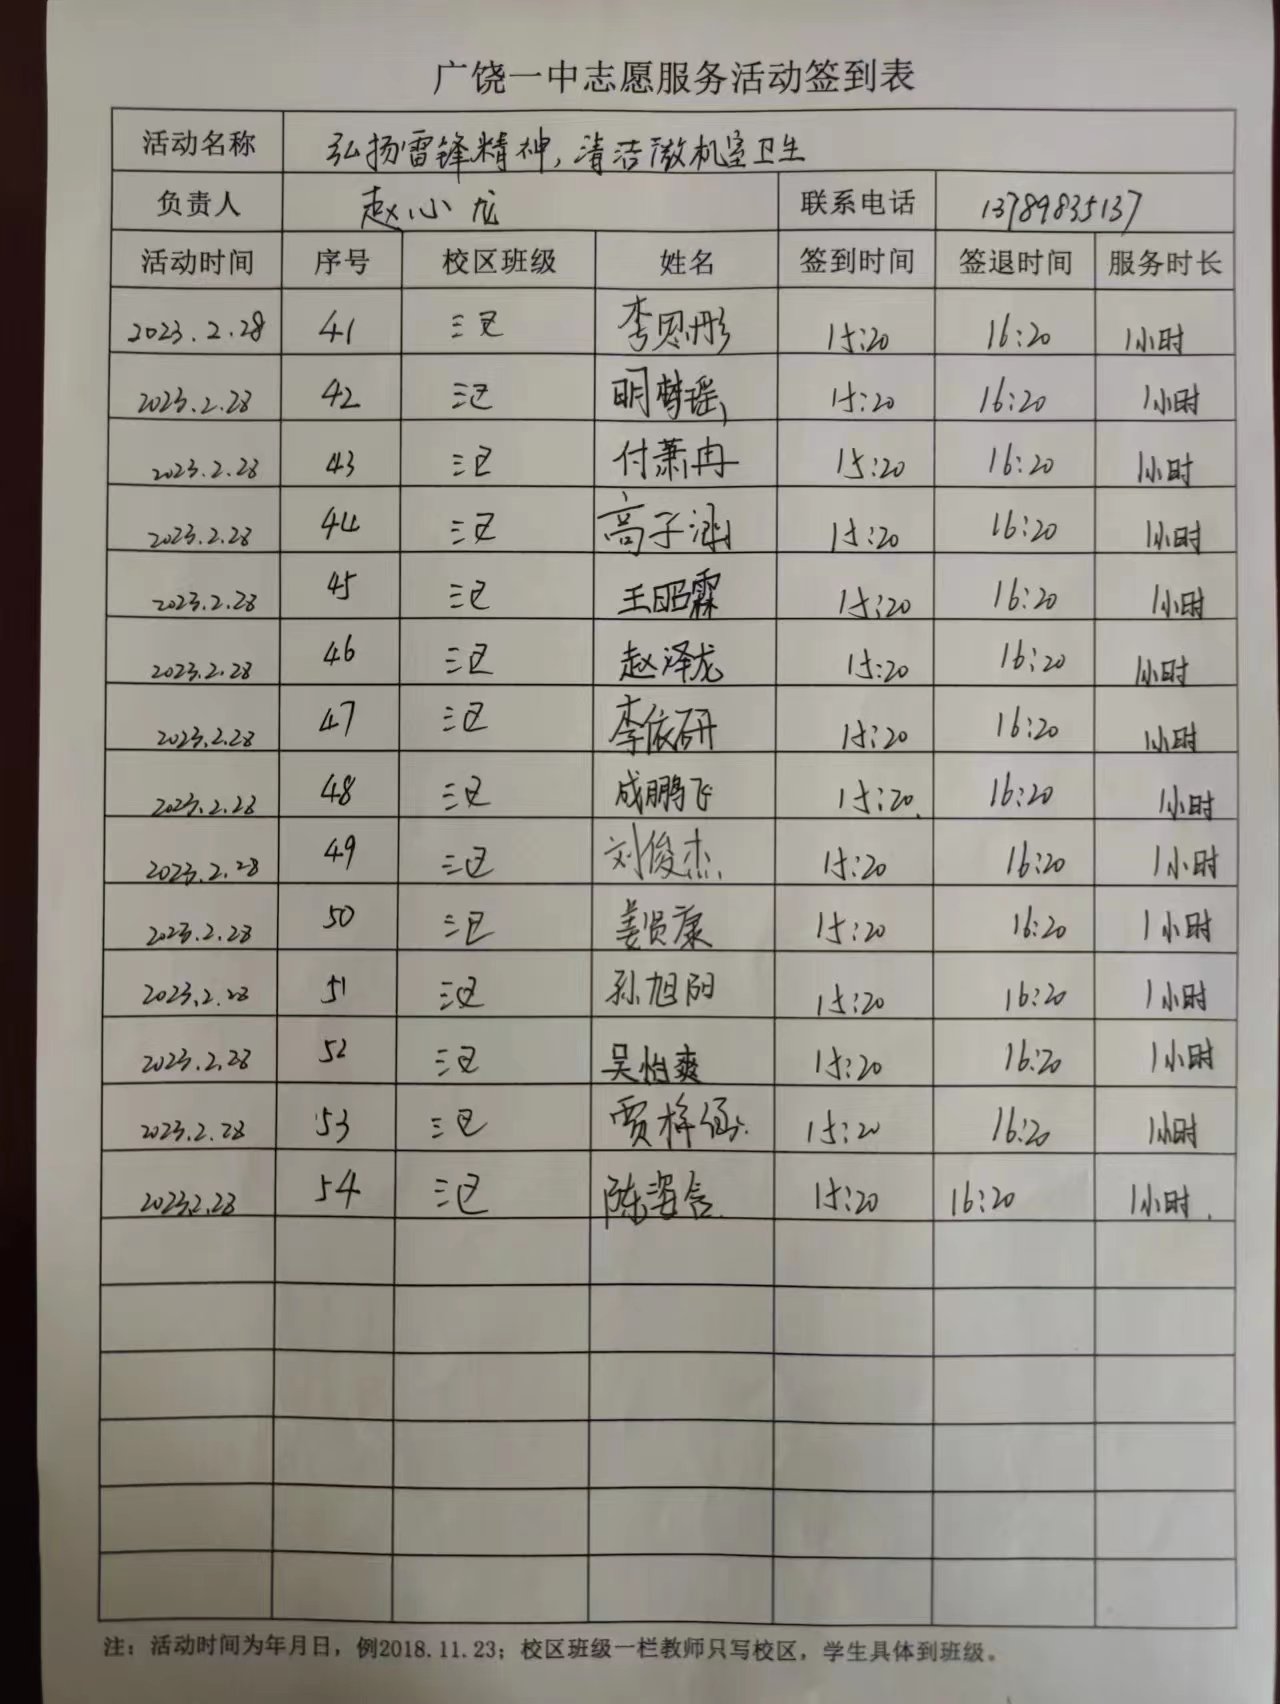 广饶一中志愿服务活动签到表
活动名称 弘扬雷锋精神，清洁微机室卫生
负责人 赵小龙 联系电话 13789835137
活动时间 序号 校区班级 姓名 签到时间 签退时间 服务时长
2023.2.28 41 三区 李恩彤 15:20 16:20 1小时
2023.2.28 42 三区 明梦瑶 15:20 16:20 1小时
2023.2.28 43 三区 付萧冉 15:20 16:20 1小时
2023.2.28 44 三区 高子涵 15:20 16:20 1小时
2023.2.28 45 三区 王昭霖 15:20 16:20 1小时
2023.2.28 46 三区 赵泽龙 15:20 16:20 1小时
2023.2.28 47 三区 李依研 15:20 16:20 1小时
2023.2.28 48 三区 成鹏飞 15:20 16:20 1小时
2023.2.28 49 三区 刘俊杰 15:20 16:20 1小时
2023.2.28 50 三区 姜贤康 15:20 16:20 1小时
2023.2.28 51 三区 孙旭阳 15:20 16:20 1小时
2023.2.28 52 三区 吴怡爽 15:20 16:20 1小时
2023.2.28 53 三区 贾梓涵 15:20 16:20 1小时
2023.2.28 54 三区 陈姿含 15:20 16:20 1小时
注：活动时间为年月日，例2018.11.23；校区班级一栏教师只写校区，学生具体到班级。